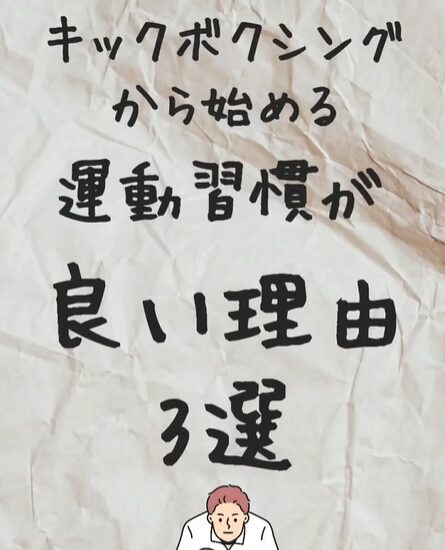 キックボクシング
から始める
運動習慣が
良い理由
3選